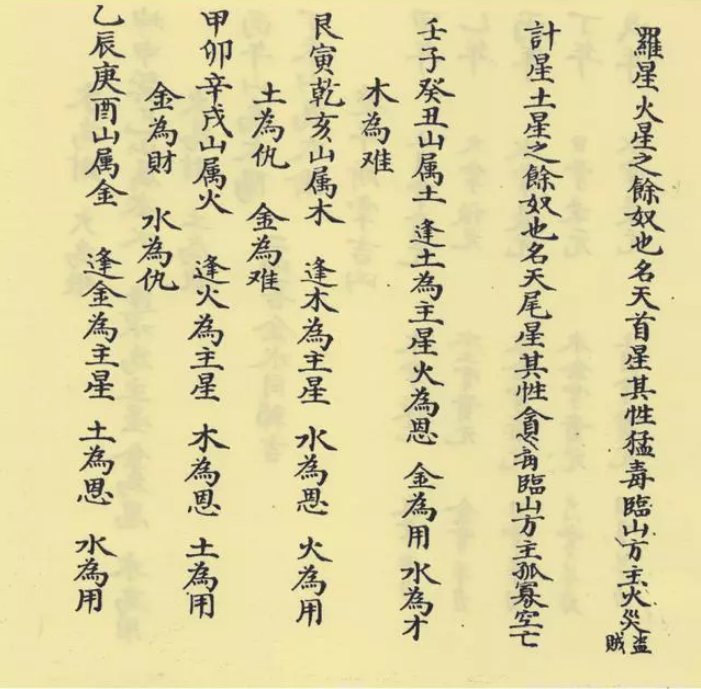 羅星火星之餘奴也名天首星其性猛毒臨山方主火災盜賊
計星土星之餘奴也名天尾星其性貪毒臨山方主孤寡空亡
壬子癸丑山属土 逢土為主星火為恩 金為用水為才
木為难
艮寅乾亥山属木 逢木為主星 水為恩 火為用
土為仇 金為难
甲卯辛戌山属火 逢火為主星 木為恩 土為用
金為財 水為仇
乙辰庚酉山属金 逢金為主星 土為恩 水為用